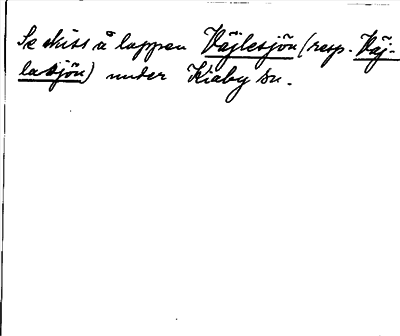 Se skiss å lappen Väjlesjön (resp. Väj-
lasjön) under Kiaby sn.